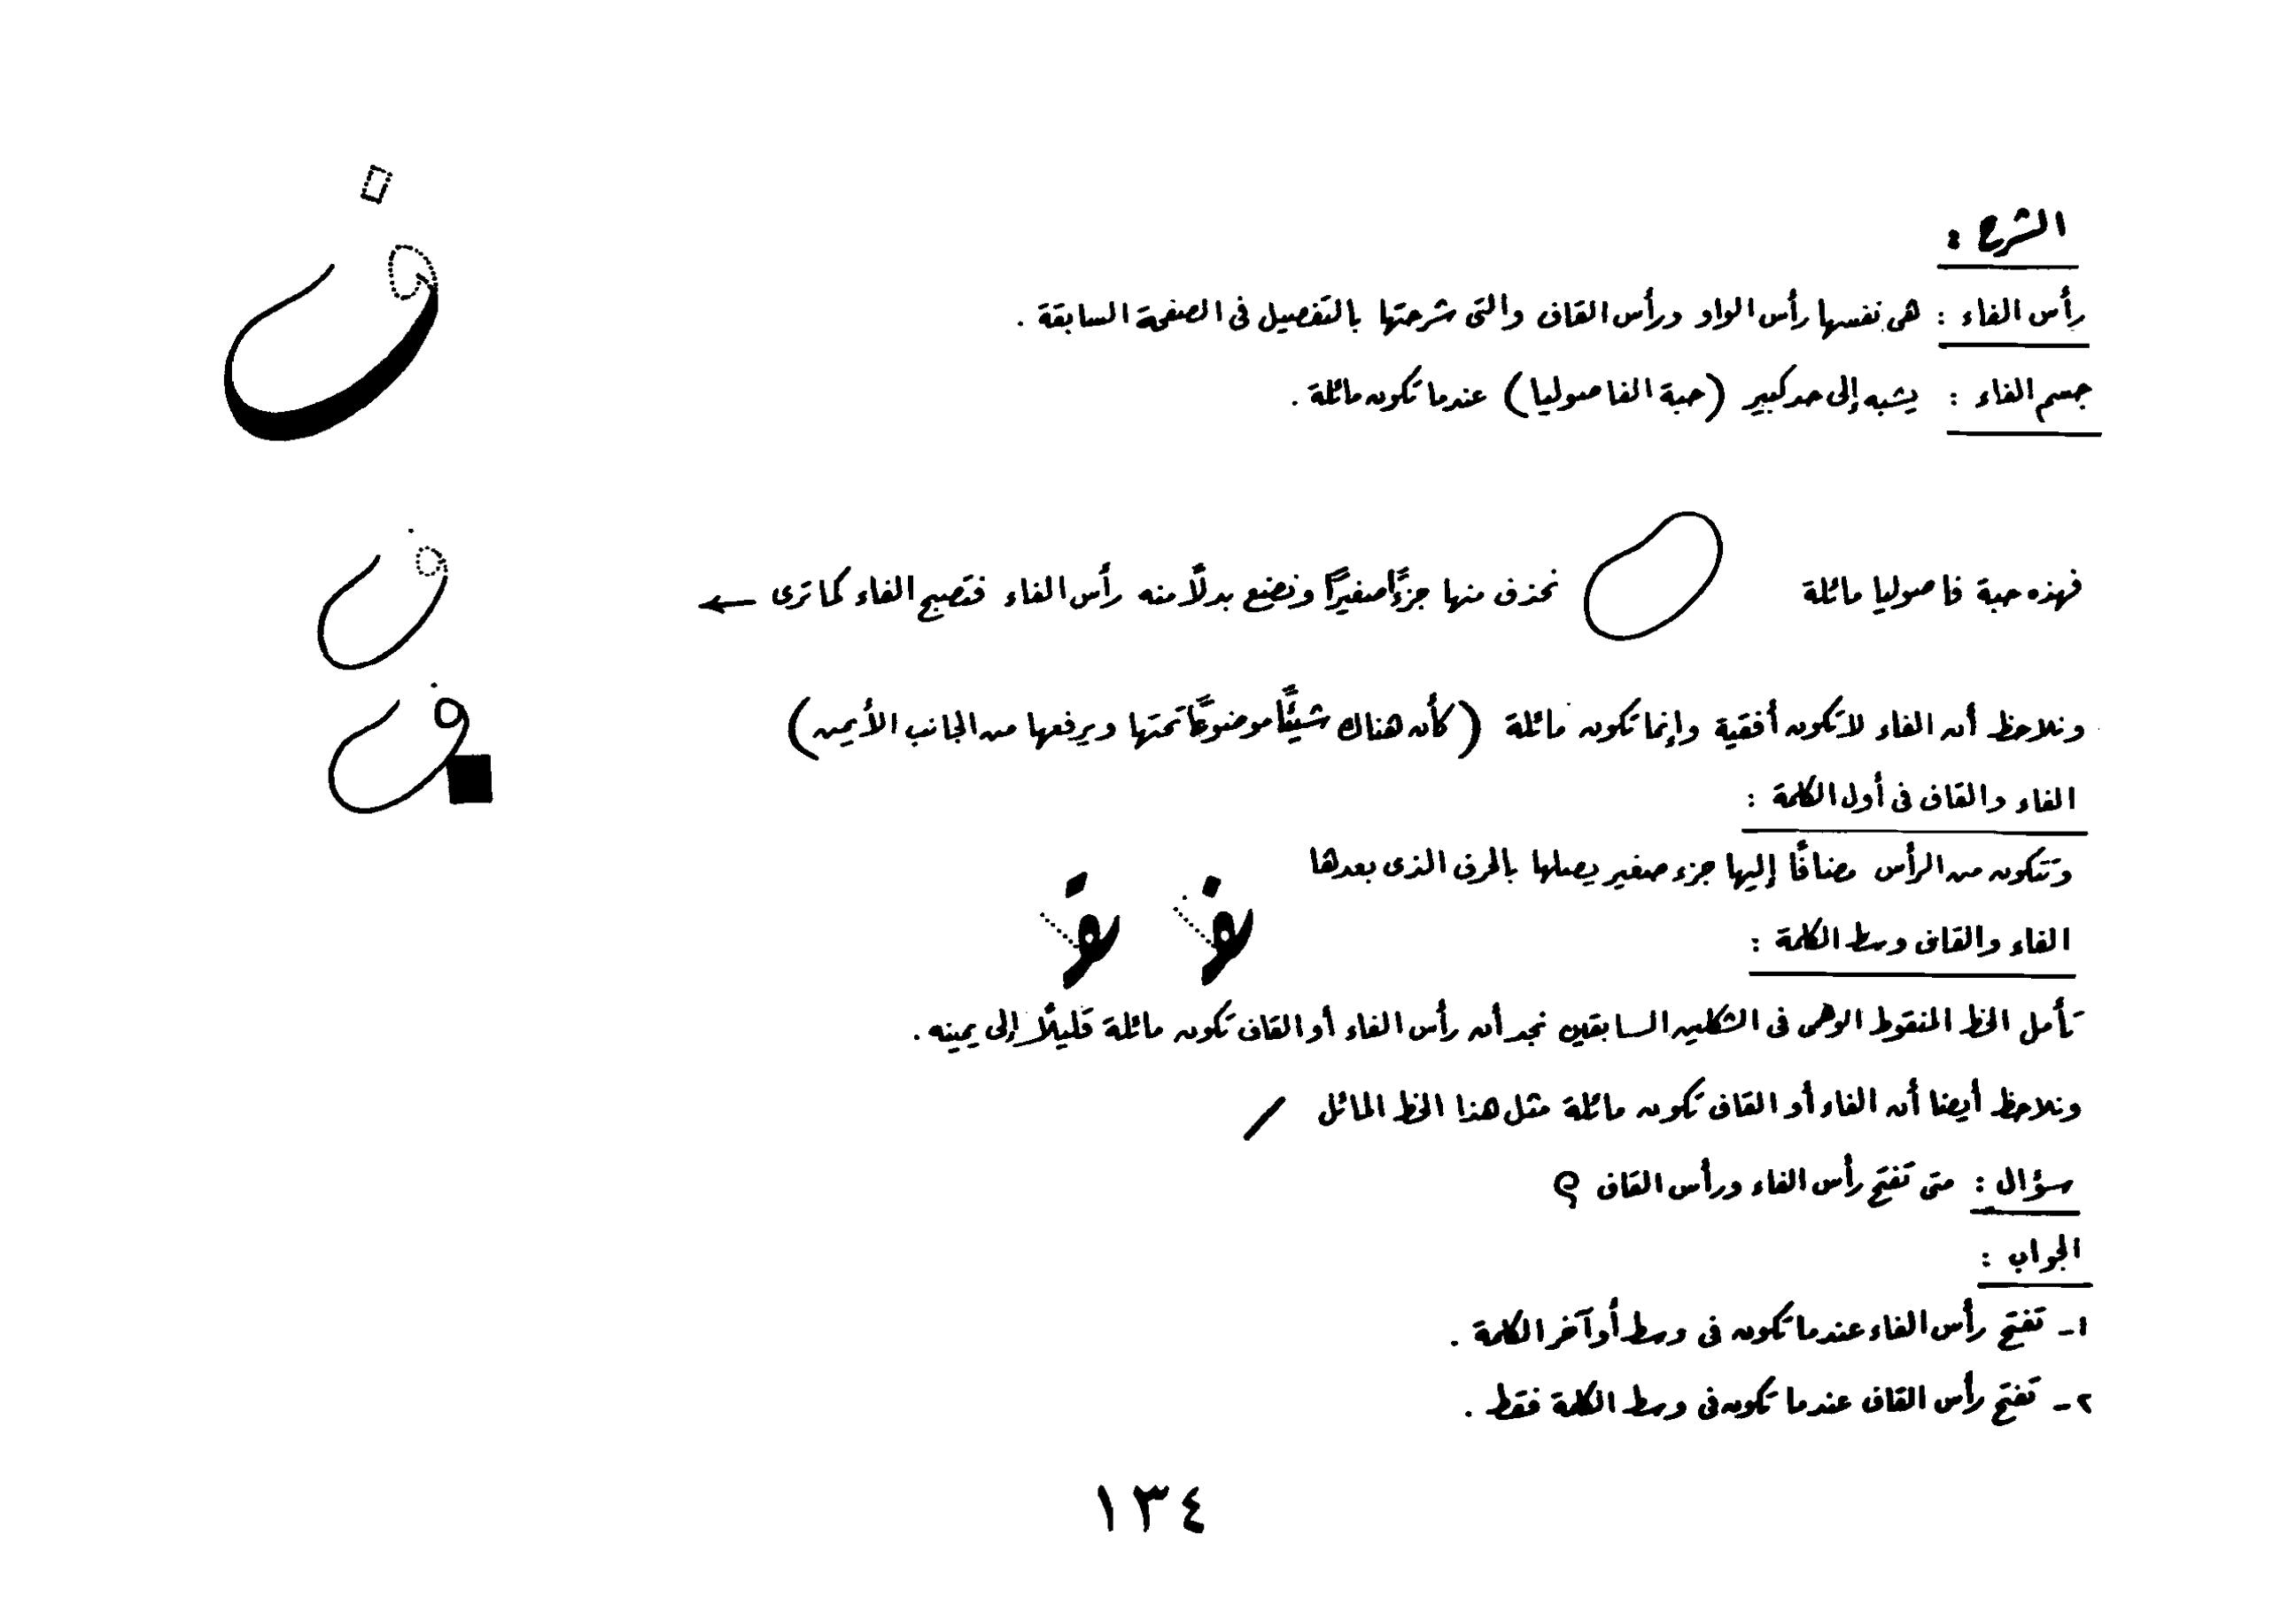 الشرح :
رأس الفاء : هى نفسها رأس الواو ورأس القاف والتى شرحتها بالتفصيل فى الصفحة السابقة .
جسم الفاء : يشبه إلى حد كبير (حبة الفاصوليا) عندما تكون مائلة .
فهذه حبة فاصوليا مائلة نحذف منها جزءًا صغيرًا ونضع بدلًا منه رأس الفاء فتصبح الفاء كما ترى ←
ونلاحظ أن الفاء لا تكون أفقية وإنما تكون مائلة (كأن هناك شيئًا موضوعًا تحتها ويرفعها من الجانب الأيمن)
الفاء والقاف فى أول الكلمة :
وتتكون من الرأس مضافًا إليها جزء صغير يصلها بالحرف الذى بعدها
الفاء والقاف وسط الكلمة :
تأمل الخط المنقوط الوهمى فى الشكلين السابقين نجد أن رأس الفاء أو القاف تكون مائلة قليلًا إلى يمينه .
ونلاحظ أيضا أن الفاء أو القاف تكون مائلة مثل هذا الخط المائل /
سؤال : متى تفتح رأس الفاء ورأس القاف ؟
الجواب :
١ـ تفتح رأس الفاء عندما تكون فى وسط أو آخر الكلمة .
٢ـ تفتح رأس القاف عندما تكون فى وسط الكلمة فقط .
١٣٤